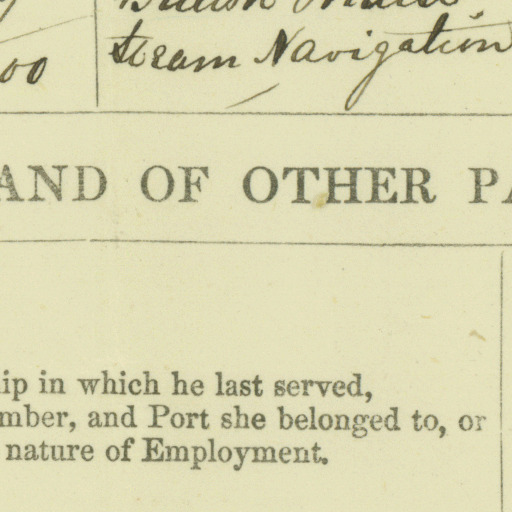 British India
00 Steam Navigation
AND OF OTHER PA
ip in which he last served,
mber, and Port she belonged to, or
nature of Employment.